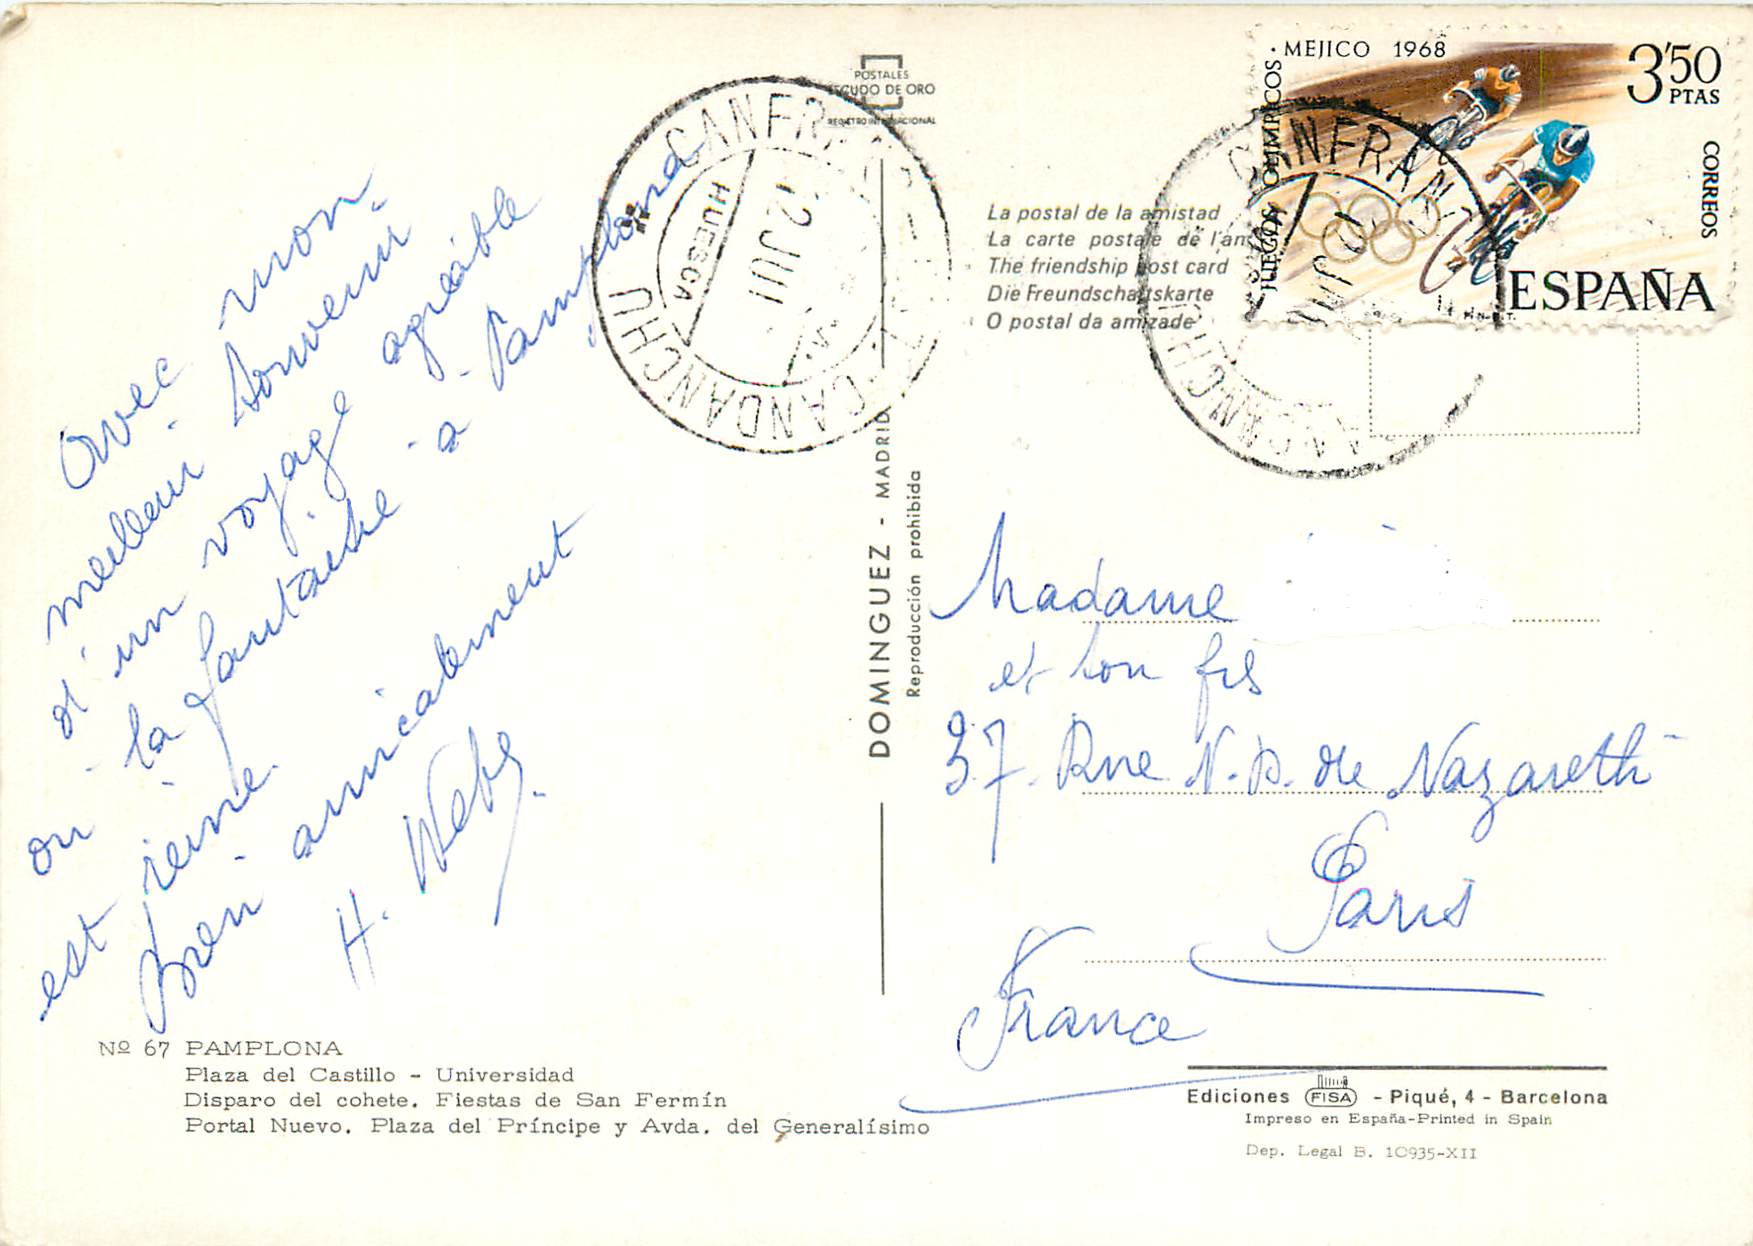 Avec mon
meilleur souvenir
d'un voyage agréable
ou la fantaisie à Pamplona
est reine.
Bien amicalement
H. Weby.
Nº 67 PAMPLONA
Plaza del Castillo - Universidad
Disparo del cohete. Fiestas de San Fermín
Portal Nuevo. Plaza del Príncipe y Avda. del Generalísimo
POSTALES
ESCUDO DE ORO
REGISTRO INTERNACIONAL
CANFRANC
HUESCA
12 JUL
CANDANCHU
DOMINGUEZ - MADRID
Reproducción prohibida
La postal de la amistad
La carte postale de l'am
The friendship post card
Die Freundschaftskarte
O postal da amizade
JUEGOS OLIMPICOS · MEJICO 1968
3'50
PTAS
CORREOS
ESPAÑA
CANFRANC
CANDANCHU
Madame
et son fils
37. Rue N.D. de Nazareth
Paris
France
Ediciones FISA - Piqué, 4 - Barcelona
Impreso en España-Printed in Spain
Dep. Legal B. 10935-XII